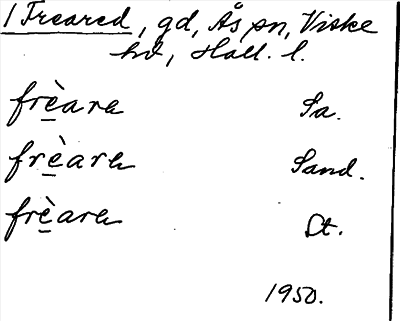 1 Freared, gd, Ås sn, Viske
hd, Hall. l.
frè̠ara Sa.
frè̠ara Sand.
frè̠ara St.
1950.